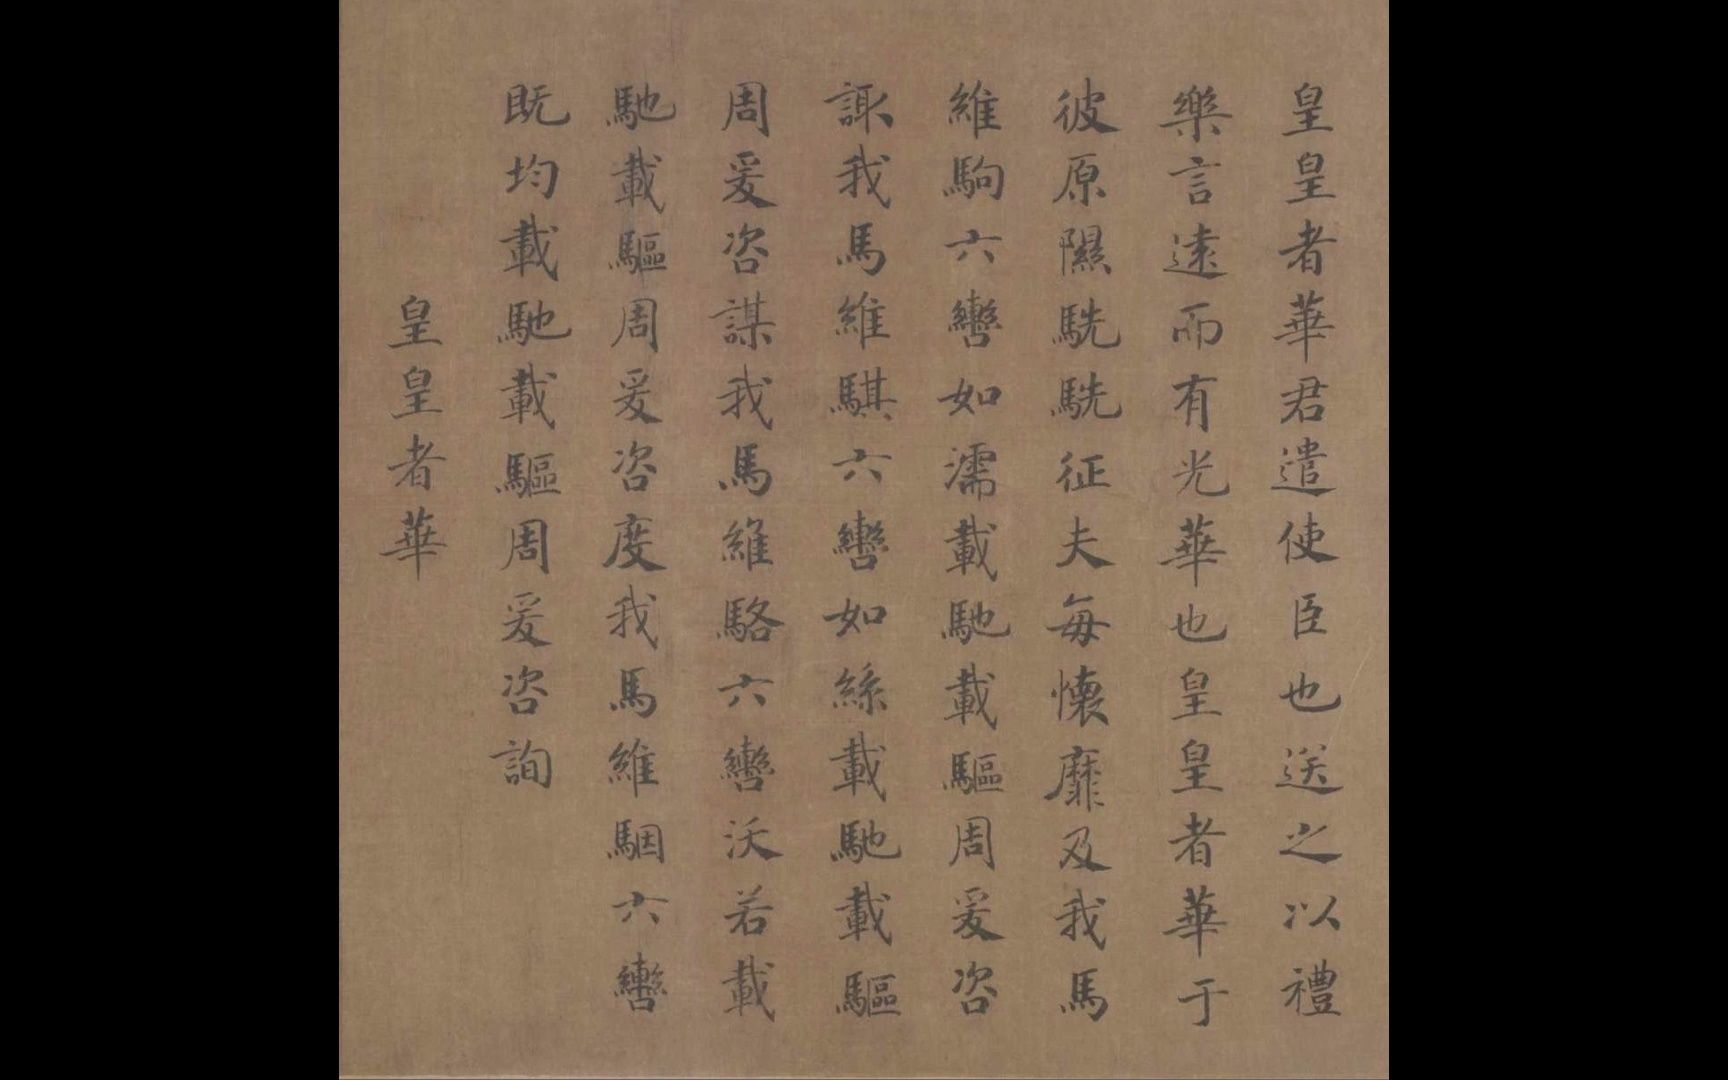 皇皇者華君遣使臣也送之以禮
樂言遠而有光華也皇皇者華于
彼原隰駪駪征夫每懷靡及我馬
維駒六轡如濡載馳載驅周爰咨
諏我馬維騏六轡如絲載馳載驅
周爰咨謀我馬維駱六轡沃若載
馳載驅周爰咨度我馬維駰六轡
既均載馳載驅周爰咨詢
皇皇者華